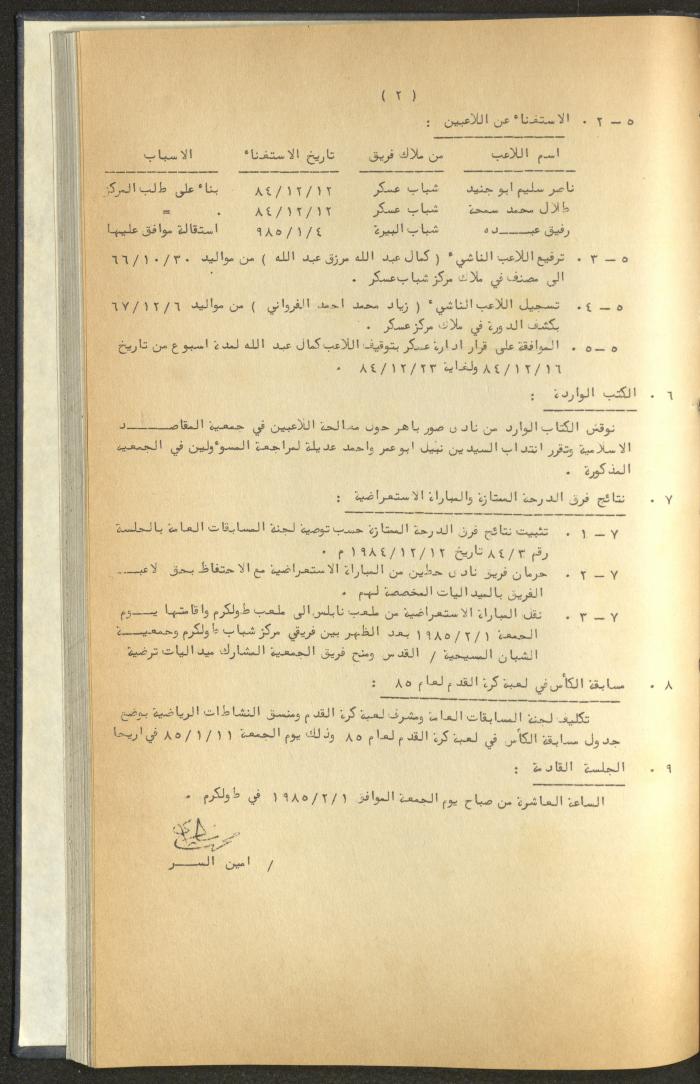 ( ٢ )
٥ – ٢ • الاستغناء عن اللاعبين :
اسم اللاعب من ملاك فريق تاريخ الاستغناء الاسباب
ناصر سليم ابو جنيد شباب عسكر ٨٤/١٢/١٢ بناء على طلب المركز
طلال محمد سمحة شباب عسكر ٨٤/١٢/١٢ • =
رفيق عبـــده شباب البيرة ٩٨٥/١/٤ استقالة موافق عليها
٥ – ٣ • ترفيع اللاعب الناشيء ( كمال عبد الله مرزق عبد الله ) من مواليد ٦٦/١٠/٣٠
الى مصنف في ملاك مركز شباب عسكر •
٥ – ٤ • تسجيل اللاعب الناشيء ( زياد محمد احمد الغرواني ) من مواليد ٦٧/١٢/٦
بكشف الدورة في ملاك مركز عسكر •
٥ – ٥ • الموافقة على قرار ادارة عسكر بتوقيف اللاعب كمال عبد الله لمدة اسبوع من تاريخ
٨٤/١٢/١٦ ولغاية ٨٤/١٢/٢٣ •
٦ • الكتب الواردة :
نوقش الكتاب الوارد من نادى صور باهر حول مصالحة اللاعبين في جمعية المقاصـــد
الاسلامية وتقرر انتداب السيدين نبيل ابو عمر واحمد عديلة لمراجعة المسؤولين في الجمعيه
المذكورة •
٧ • نتائج فرق الدرجة الممتازة والمباراة الاستعراضية :
٧ – ١ • تثبيت نتائج فرق الدرجة الممتازة حسب توصية لجنة المسابقات العامة بالجلسة
رقم ٨٤/٣ تاريخ ١٩٨٤/١٢/١٢ م •
٧ – ٢ • حرمان فريق نادى حطين من المباراة الاستعراضية مع الاحتفاظ بحق لاعبـــي
الفريق بالميداليات المخصصة لهم •
٧ – ٣ • نقل المباراة الاستعراضية من ملعب نابلس الى ملعب طولكرم واقامتها يـــوم
الجمعة ١٩٨٥/٢/١ بعد الظهر بين فريقي مركز شباب طولكرم وجمعيـــة
الشبان المسيحية / القدس ومنح فريق الجمعية المشارك ميداليات ترضية
٨ • مسابقة الكأس في لعبة كرة القدم لعام ٨٥ :
تكليف لجنة المسابقات العامة ومشرف لعبة كرة القدم ومنسق النشاطات الرياضية بوضع
جدول مسابقة الكأس في لعبة كرة القدم لعام ٨٥ وذلك يوم الجمعة ٨٥/١/١١ في اريحا
٩ • الجلسة القادمة :
الساعة العاشرة من صباح يوم الجمعة الموافق ١٩٨٥/٢/١ في طولكرم •
/ امين الســـر